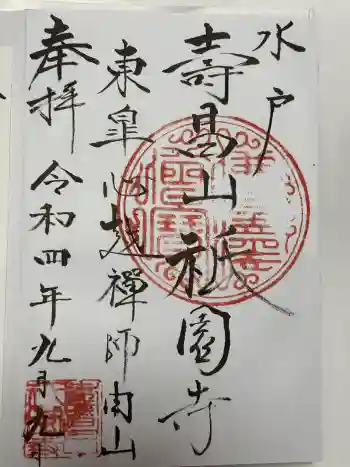 水戸
壽昌山祇園寺
東皐心越禅師開山
奉拝
令和四年九月九日